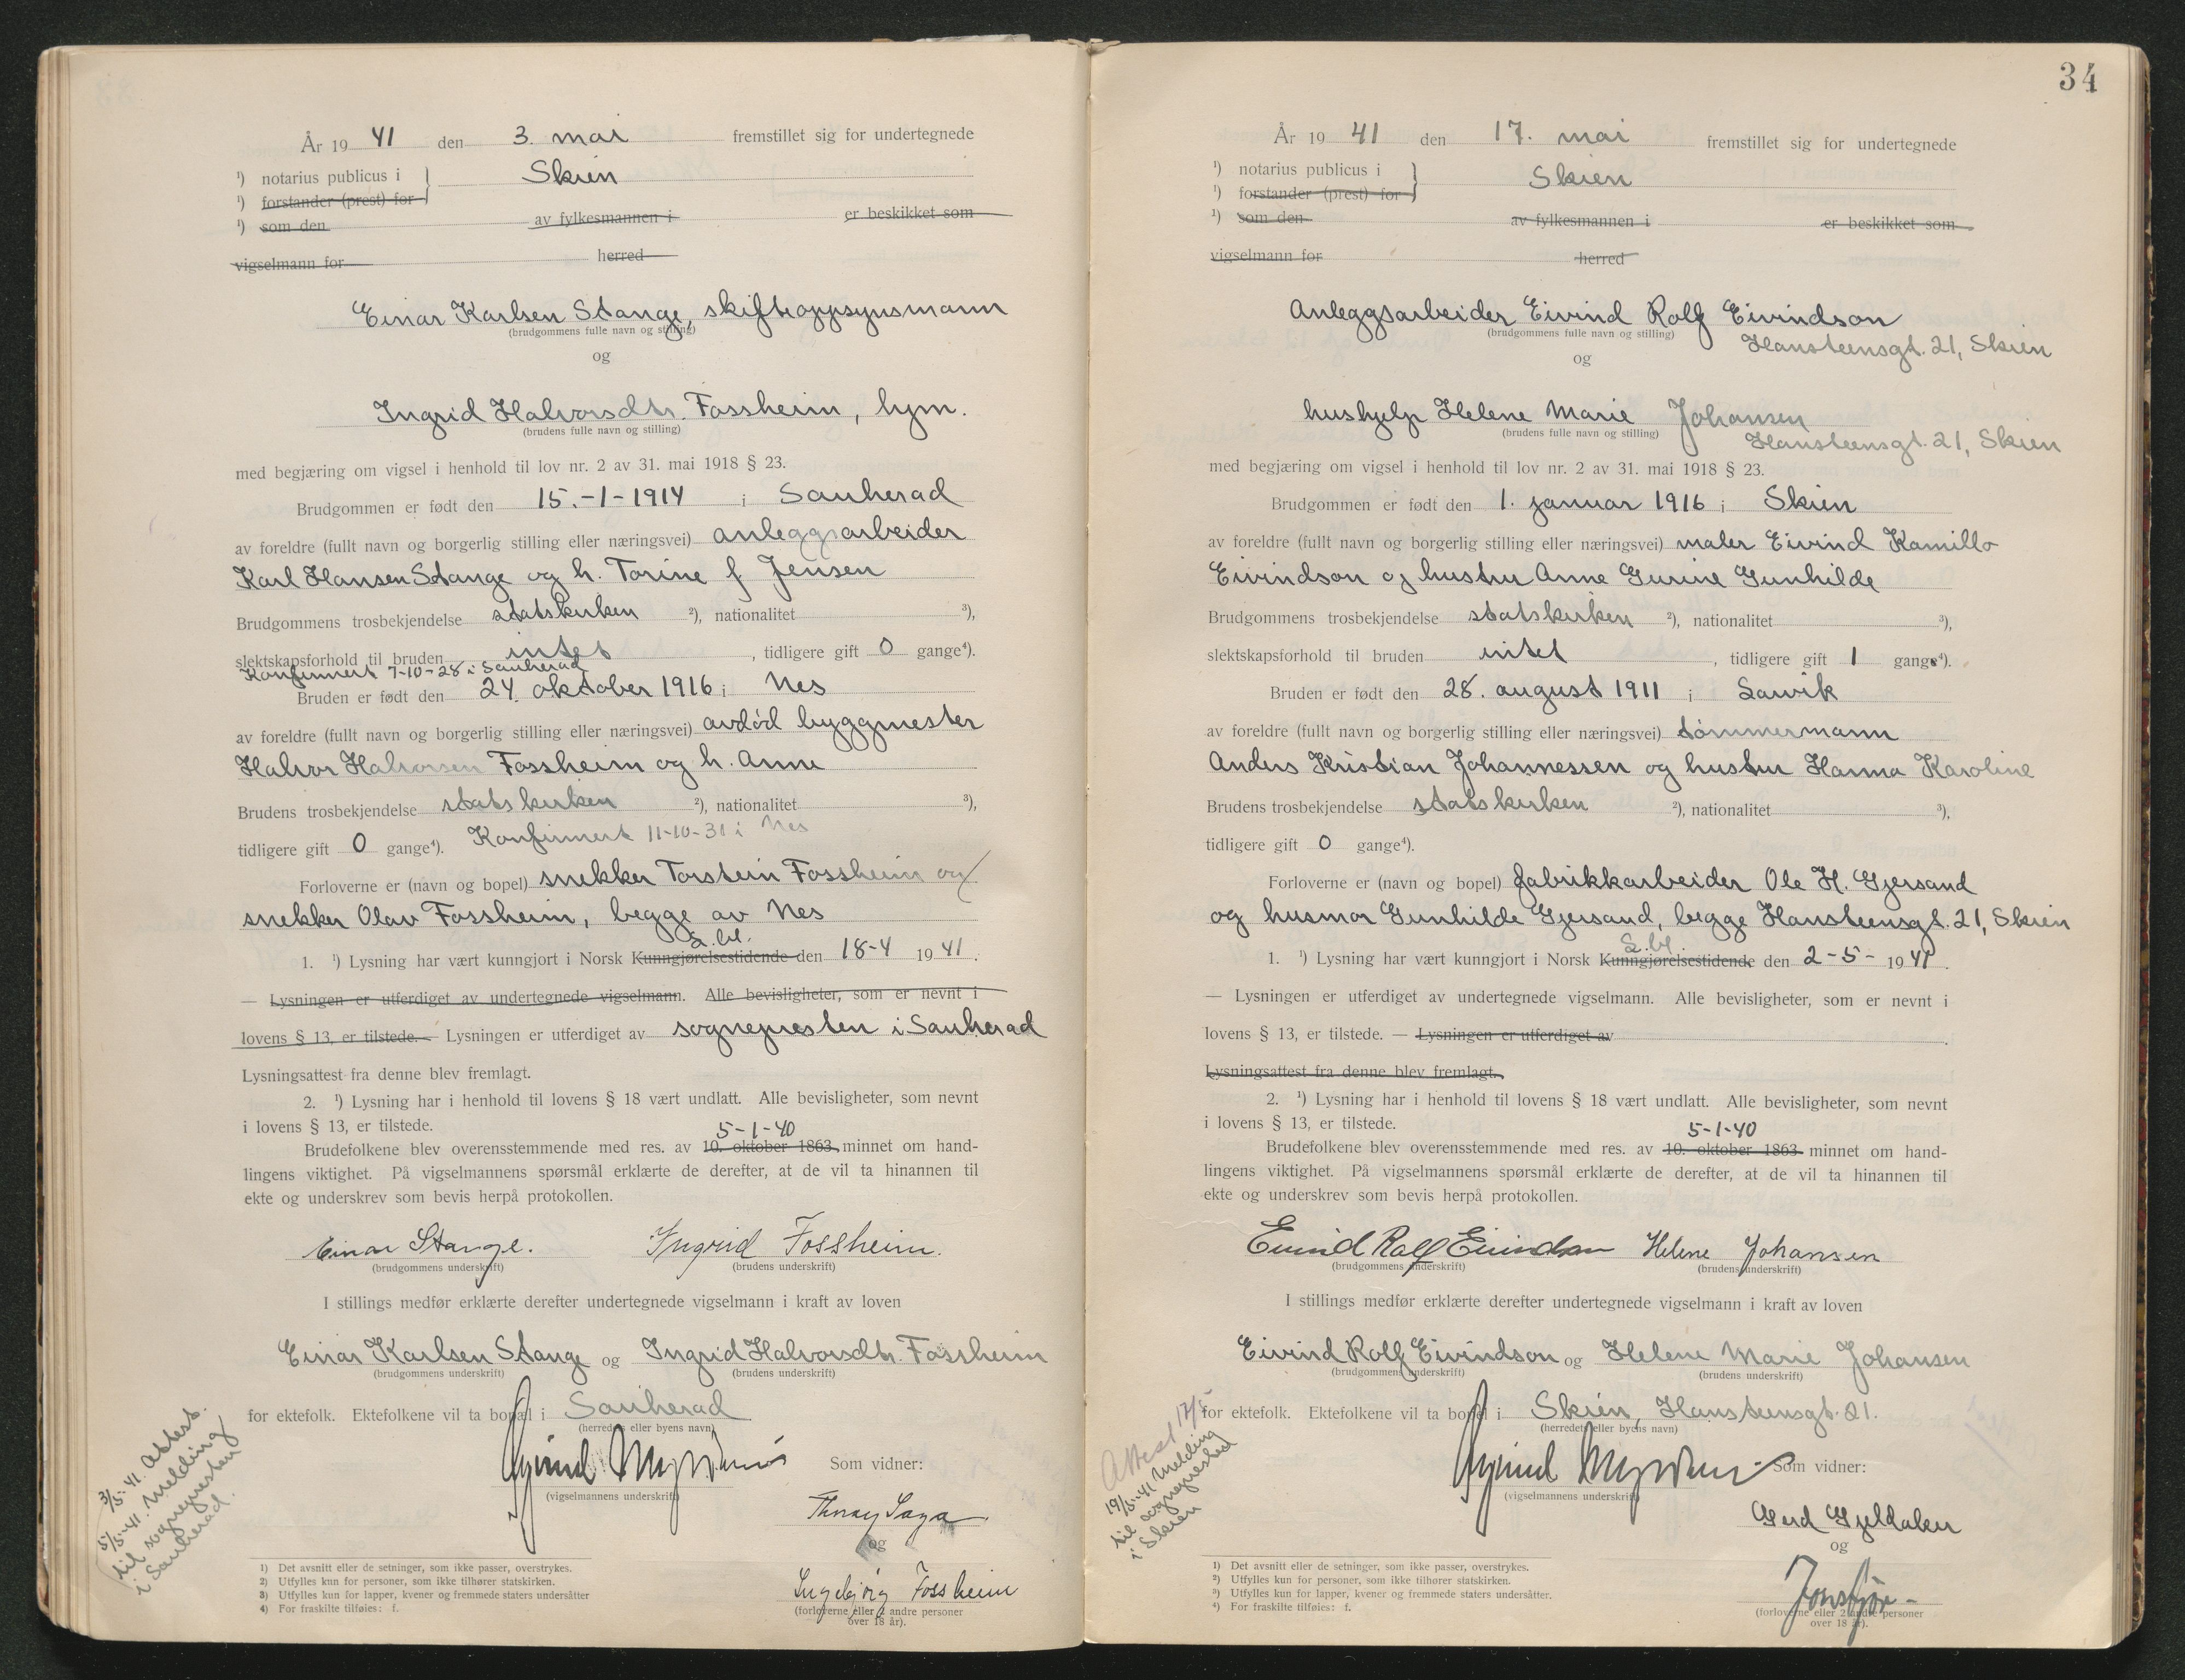 År 1941 den 3. mai fremstillet sig for undertegnede
¹) notarius publicus i } Skien
¹) forstander (prest) for
¹) som den av fylkesmannen i er beskikket som
vigselmann for herred
Einar Karlsen Stange, skifteoppsynsmann
(brudgommens fulle navn og stilling)
og
Ingrid Halvorsdtr. Fossheim, hjm.
(brudens fulle navn og stilling)
med begjæring om vigsel i henhold til lov nr. 2 av 31. mai 1918 § 23.
Brudgommen er født den 15.-1-1914 i Sauherad
av foreldre (fullt navn og borgerlig stilling eller næringsvei) anleggsarbeider
Karl Hansen Stange og h. Torine f Jensen
Brudgommens trosbekjendelse statskirken ²), nationalitet ³),
slektskapsforhold til bruden intet, tidligere gift 0 gange⁴).
Konfirmert 7-10-28 i Sauherad
Bruden er født den 24. oktober 1916 i Nes
av foreldre (fullt navn og borgerlig stilling eller næringsvei) avdød byggmester
Halvor Halvorsen Fossheim og h. Anne
Brudens trosbekjendelse statskirken ²), nationalitet ³),
tidligere gift 0 gange⁴). Konfirmert 11-10-31 i Nes
Forloverne er (navn og bopel) snekker Torstein Fossheim og
snekker Olav Fossheim, begge av Nes
S.bl.
1. ¹) Lysning har vært kunngjort i Norsk Kunngjørelsestidende den 18-4 1941.
— Lysningen er utferdiget av undertegnede vigselmann. Alle bevisligheter, som er nevnt i
lovens § 13, er tilstede. — Lysningen er utferdiget av sognepresten i Sauherad
Lysningsattest fra denne blev fremlagt.
2. ¹) Lysning har i henhold til lovens § 18 vært undlatt. Alle bevisligheter, som nevnt
i lovens § 13, er tilstede.
5-1-40
Brudefolkene blev overensstemmende med res. av 10. oktober 1863 minnet om hand-
lingens viktighet. På vigselmannens spørsmål erklærte de derefter, at de vil ta hinannen til
ekte og underskrev som bevis herpå protokollen.
Einar Stange. Ingrid Fossheim.
(brudgommens underskrift) (brudens underskrift)
I stillings medfør erklærte derefter undertegnede vigselmann i kraft av loven
Einar Karlsen Stange og Ingrid Halvorsdtr. Fossheim
(brudgommens underskrift) (brudens underskrift)
for ektefolk. Ektefolkene vil ta bopæl i Sauherad
(herredets eller byens navn)
Som vidner:
(vigselmannens underskrift)
og
Ingebjørg Fossheim
(forloverne eller 2 andre personer
over 18 år).
3/5-41. Attest.
5/5-41. Melding
til sognepresten
i Sauherad.
1) Det avsnitt eller de setninger, som ikke passer, overstrykes.
2) Utfylles kun for personer, som ikke tilhører statskirken.
3) Utfylles kun for lapper, kvener og fremmede staters undersåtter
4) For fraskilte tilføies: f.
34
År 1941 den 17. mai fremstillet sig for undertegnede
¹) notarius publicus i } Skien
¹) forstander (prest) for
¹) som den av fylkesmannen i er beskikket som
vigselmann for herred
Anleggsarbeider Eivind Rolf Eivindson
(brudgommens fulle navn og stilling)
Hansteensgt. 21, Skien
og
hushjelp Helene Marie Johansen
(brudens fulle navn og stilling)
Hansteensgt. 21, Skien
med begjæring om vigsel i henhold til lov nr. 2 av 31. mai 1918 § 23.
Brudgommen er født den 1. januar 1916 i Skien
av foreldre (fullt navn og borgerlig stilling eller næringsvei) maler Eivind Kamillo
Eivindson og hustru Anne Gurine Gunhilde
Brudgommens trosbekjendelse statskirken ²), nationalitet ³),
slektskapsforhold til bruden intet, tidligere gift 1 gange⁴).
Bruden er født den 28. august 1911 i Larvik
av foreldre (fullt navn og borgerlig stilling eller næringsvei) tømmermann
Anders Kristian Johannessen og hustru Hanna Karoline
Brudens trosbekjendelse statskirken ²), nationalitet ³),
tidligere gift 0 gange⁴).
Forloverne er (navn og bopel) fabrikkarbeider Ole H. Gjersand
og husmor Gunhilde Gjersand, begge Hansteensgt. 21, Skien
S.bl.
1. ¹) Lysning har vært kunngjort i Norsk Kunngjørelsestidende den 2-5- 1941.
— Lysningen er utferdiget av undertegnede vigselmann. Alle bevisligheter, som er nevnt i
lovens § 13, er tilstede. — Lysningen er utferdiget av
Lysningsattest fra denne blev fremlagt.
2. ¹) Lysning har i henhold til lovens § 18 vært undlatt. Alle bevisligheter, som nevnt
i lovens § 13, er tilstede.
5-1-40
Brudefolkene blev overensstemmende med res. av 10. oktober 1863 minnet om hand-
lingens viktighet. På vigselmannens spørsmål erklærte de derefter, at de vil ta hinannen til
ekte og underskrev som bevis herpå protokollen.
Eivind Rolf Eivindson Helene Johansen
(brudgommens underskrift) (brudens underskrift)
I stillings medfør erklærte derefter undertegnede vigselmann i kraft av loven
Eivind Rolf Eivindson og Helene Marie Johansen
(brudgommens underskrift) (brudens underskrift)
for ektefolk. Ektefolkene vil ta bopel i Skien, Hansteensgt. 21.
(herredets eller byens navn)
Som vidner:
(vigselmannens underskrift)
Gerd Gjeldaker
og
(forloverne eller 2 andre personer
over 18 år).
Attest 17/5
19/5-41 Melding
til sogneprested
i Skien
1) Det avsnitt eller de setninger, som ikke passer, overstrykes.
2) Utfylles kun for personer, som ikke tilhører statskirken.
3) Utfylles kun for lapper, kvener og fremmede staters undersåtter.
4) For fraskilte tilføies: f.